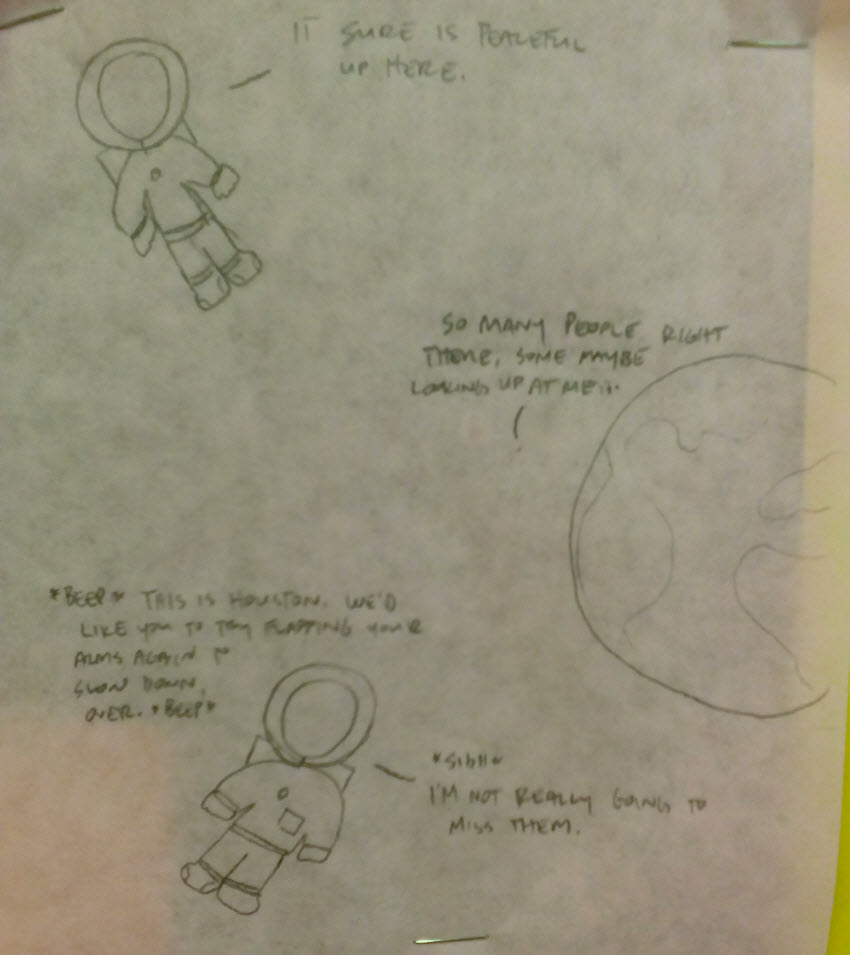 IT SURE IS PEACEFUL
UP HERE.
SO MANY PEOPLE RIGHT
THERE, SOME MAYBE
LOOKING UP AT ME...
*BEEP* THIS IS HOUSTON. WE'D
LIKE YOU TO TRY FLAPPING YOUR
ARMS AGAIN TO
SLOW DOWN,
OVER. *BEEP*
*SIGH*
I'M NOT REALLY GOING TO
MISS THEM.